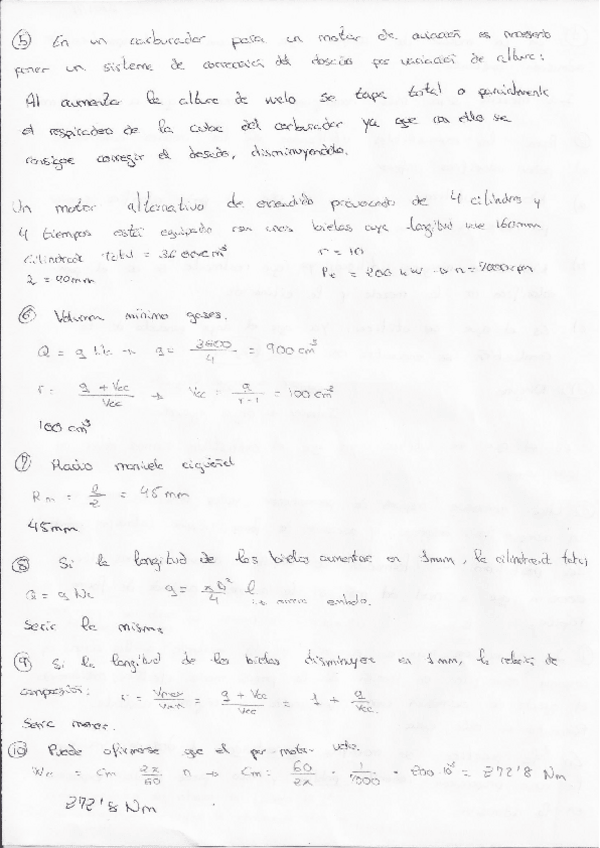 ⑤ En un carburador para un motor de aviación es necesario
poner un sistema de corrección del dosado por variación de altura:
Al aumentar la altura de vuelo se tapa total o parcialmente
el respiradero de la cuba del carburador ya que con ello se
consigue corregir el dosado, disminuyendolo.
Un motor alternativo de encendido provocado de 4 cilindros y
4 tiempos está equipado con unas bielas cuya longitud vale 160mm
Cilindrada total = 3600cm³ r = 10
l = 90mm Pe = 200 kW n = 7000rpm
⑥ Volumen mínimo gases.
Q = q Nc → q = 3600/4 = 900 cm³
r = (q + Vcc)/Vcc → Vcc = q/(r-1) = 100 cm³
100 cm³
⑦ Radio manivela cigüeñal
Rm = l/2 = 45 mm
45mm
⑧ Si la longitud de las bielas aumentase en 1mm, la cilindrada total
Q = q Nc q = πD²/4 l embolo.
Seria la misma
⑨ Si la longitud de las bielas disminuyer en 1mm, la relación de
compresión: r = Vmax/Vmin = (q + Vcc)/Vcc = 1 + q/Vcc
Seria menor.
⑩ Puede afirmarse que el par motor vale.
We = Cm 2π/60 n → Cm = 60/2π · 1/7000 · 200 10³ = 272'8 Nm
272'8 Nm